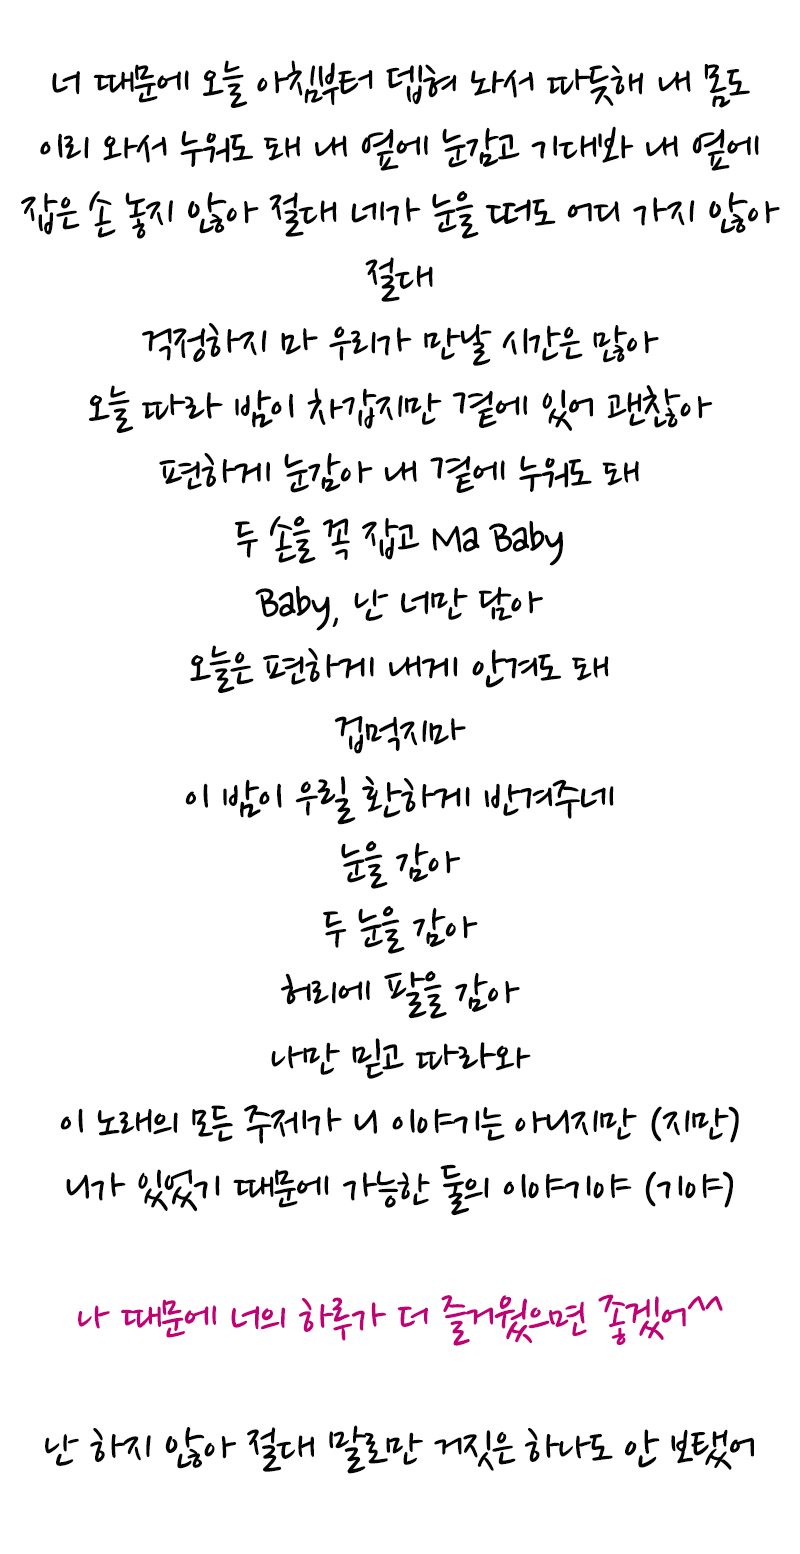 너 때문에 오늘 아침부터 뎁혀 놔서 따듯해 내 몸도
이리 와서 누워도 돼 내 옆에 눈감고 기대봐 내 옆에
잡은 손 놓지 않아 절대 네가 눈을 떠도 어디 가지 않아
절대
걱정하지 마 우리가 만날 시간은 많아
오늘 따라 밤이 차갑지만 곁에 있어 괜찮아
편하게 눈감아 내 곁에 누워도 돼
두 손을 꼭 잡고 Ma Baby
Baby, 난 너만 담아
오늘은 편하게 내게 안겨도 돼
겁먹지마
이 밤이 우릴 환하게 반겨주네
눈을 감아
두 눈을 감아
허리에 팔을 감아
나만 믿고 따라와
이 노래의 모든 주제가 니 이야기는 아니지만 (지만)
니가 있었기 때문에 가능한 둘의 이야기야 (기야)
나 때문에 너의 하루가 더 즐거웠으면 좋겠어^^
난 하지 않아 절대 말로만 거짓은 하나도 안 보탰어